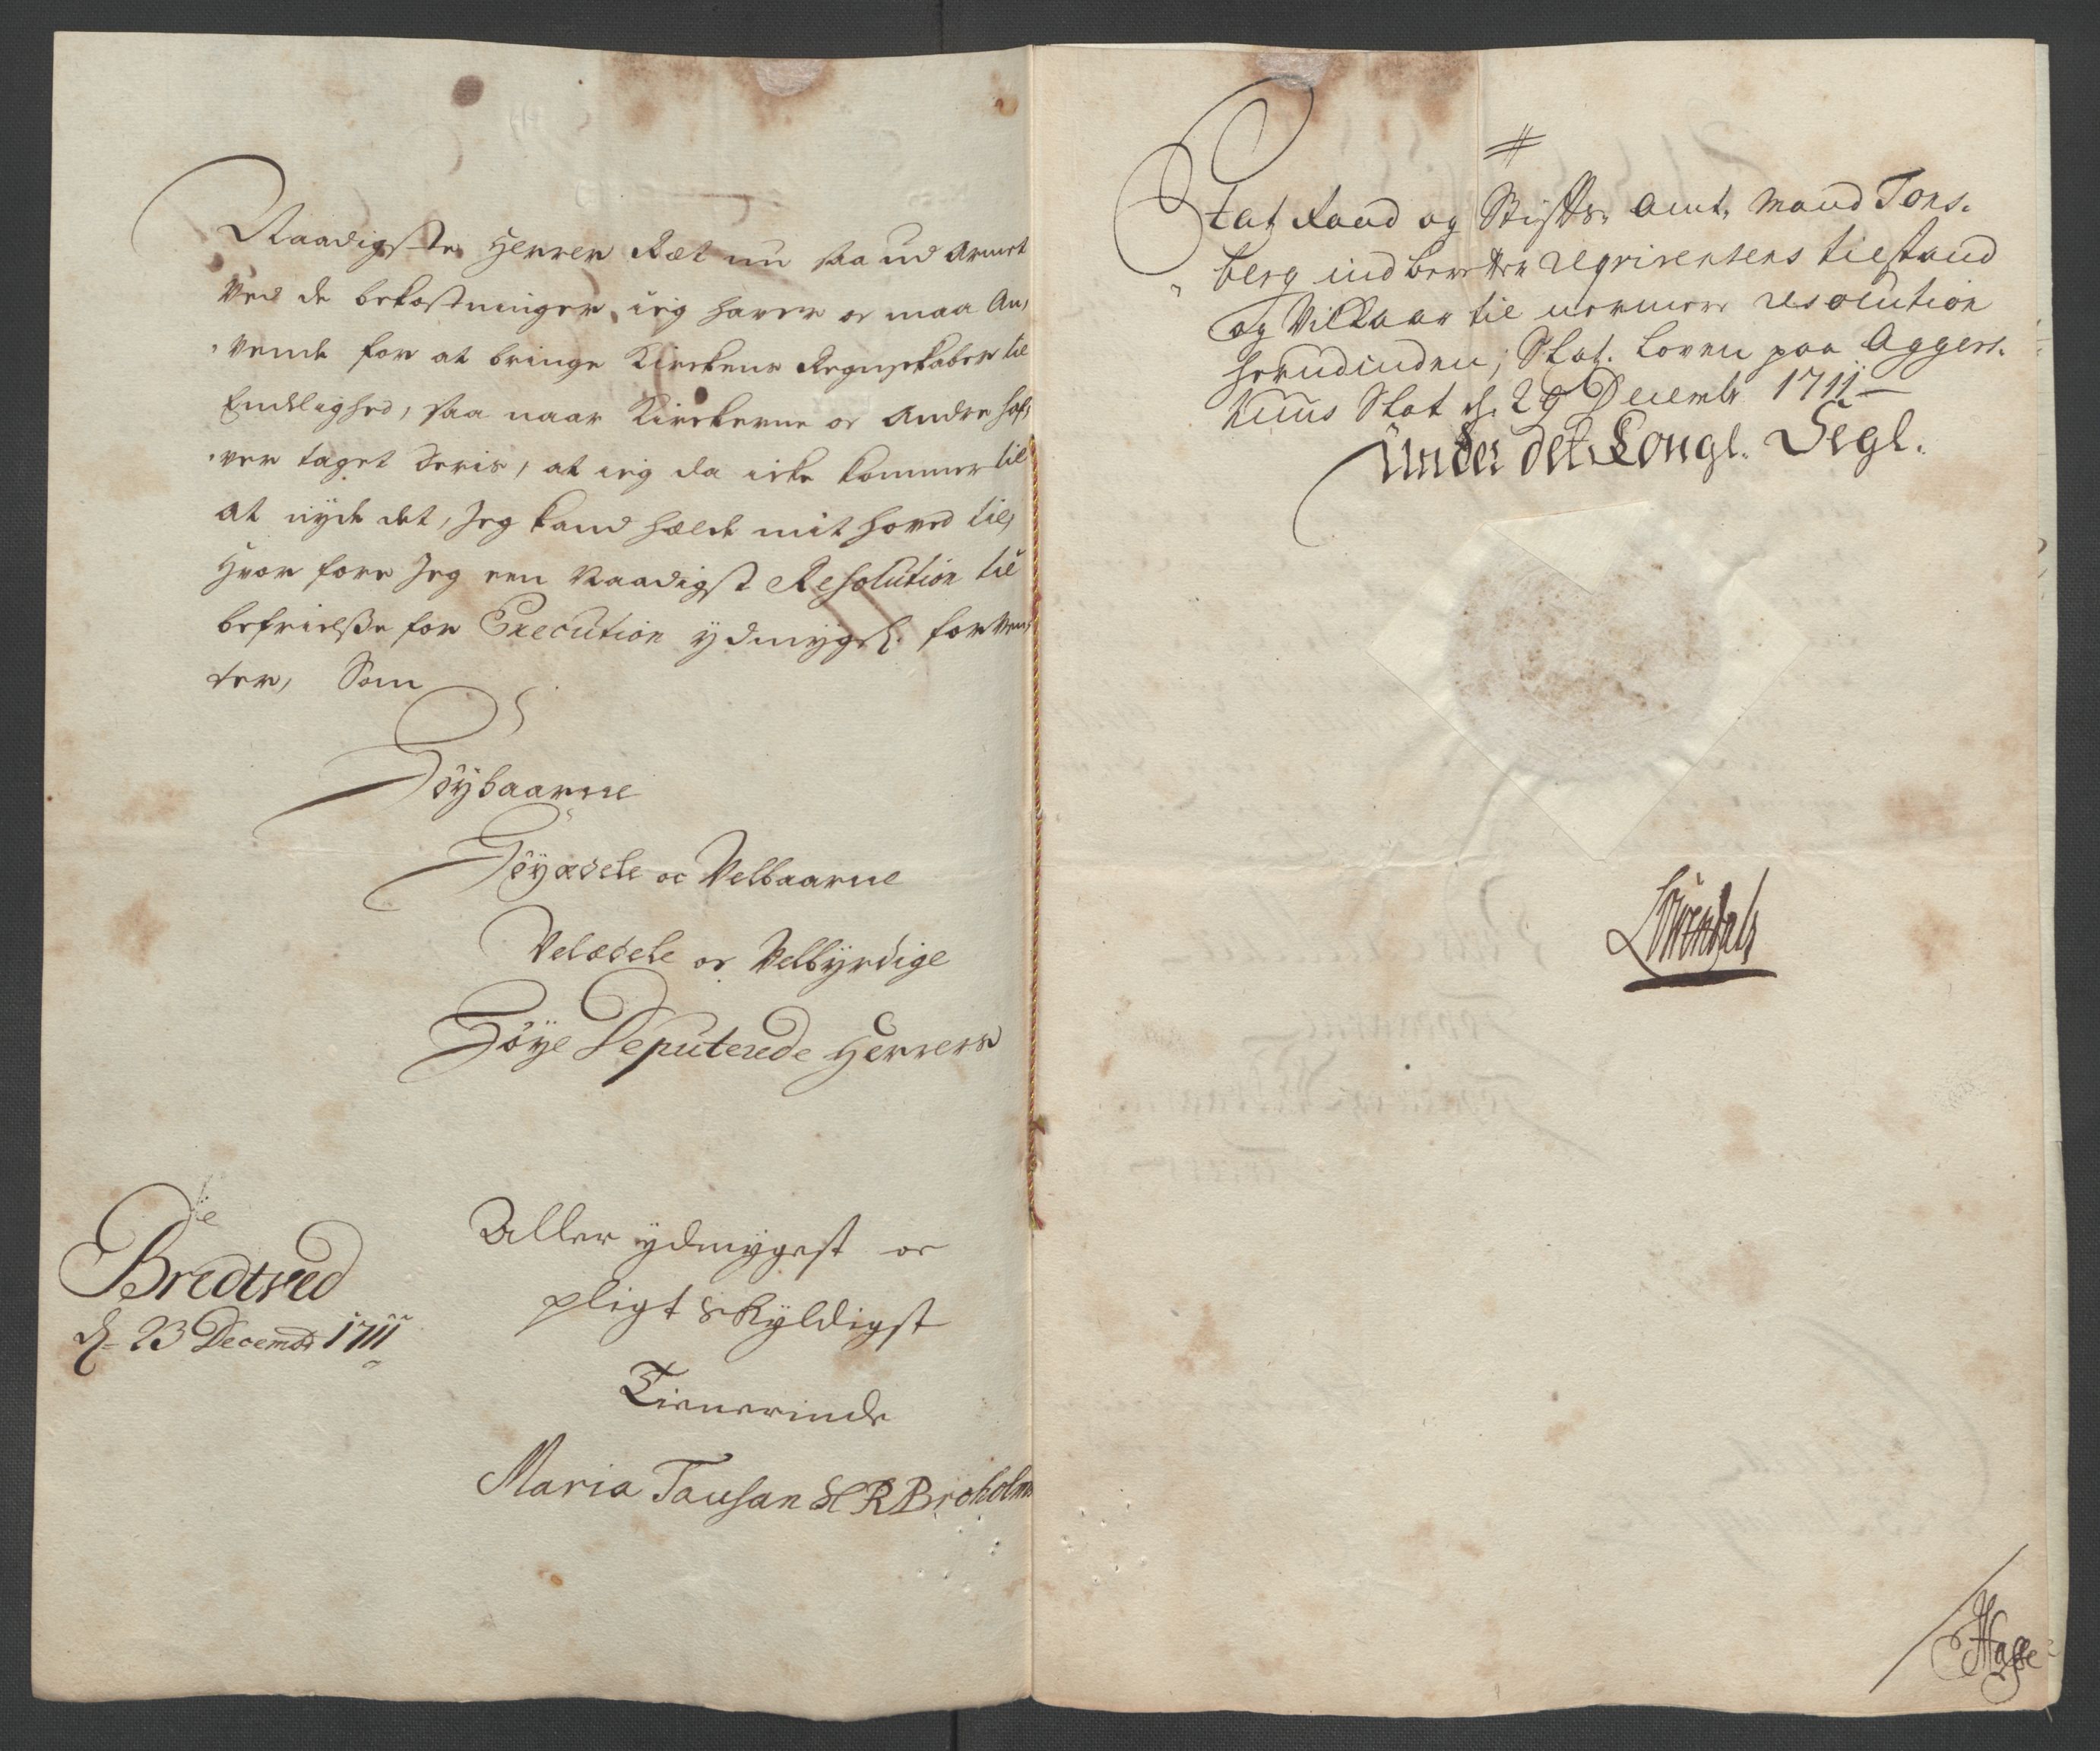 Naadigste Herrer Ræt nu saa ud armet
ved de bekostninger ieg haver oc maa An,
,vende for at bringe Kirckens Regnskaber til
Endelighed, saa naar Kirckerne oc Andre haf,
,ver taget deris, at ieg da icke kommer til
at nyde det, Jeg kand hælde mit hoved til,
Hvor fore Jeg een Naadigst Resolution til
befrielsse for Execution ydmygel. forven,
ter, Som
Høybaarne
Høyædele oc Velbaarne
Velædele oc Velbyrdige
Høye Deputerede Herrers
Bredtved
d. 23 Decembr 1711
Aller ydmygest oc
pligt skyldigst
Tienerinde
Maria Tausan Sl R Broholms
Etat Raad og Stifts Amt, Mand Tons,
berg indberetter
og Vilkaar til nermere resolution
herudinden, Slot. Loven paa Aggers,
huus Slot d. 29 Decembr 1711
Under det Kongl. Segl.
Löwendals
Hasse